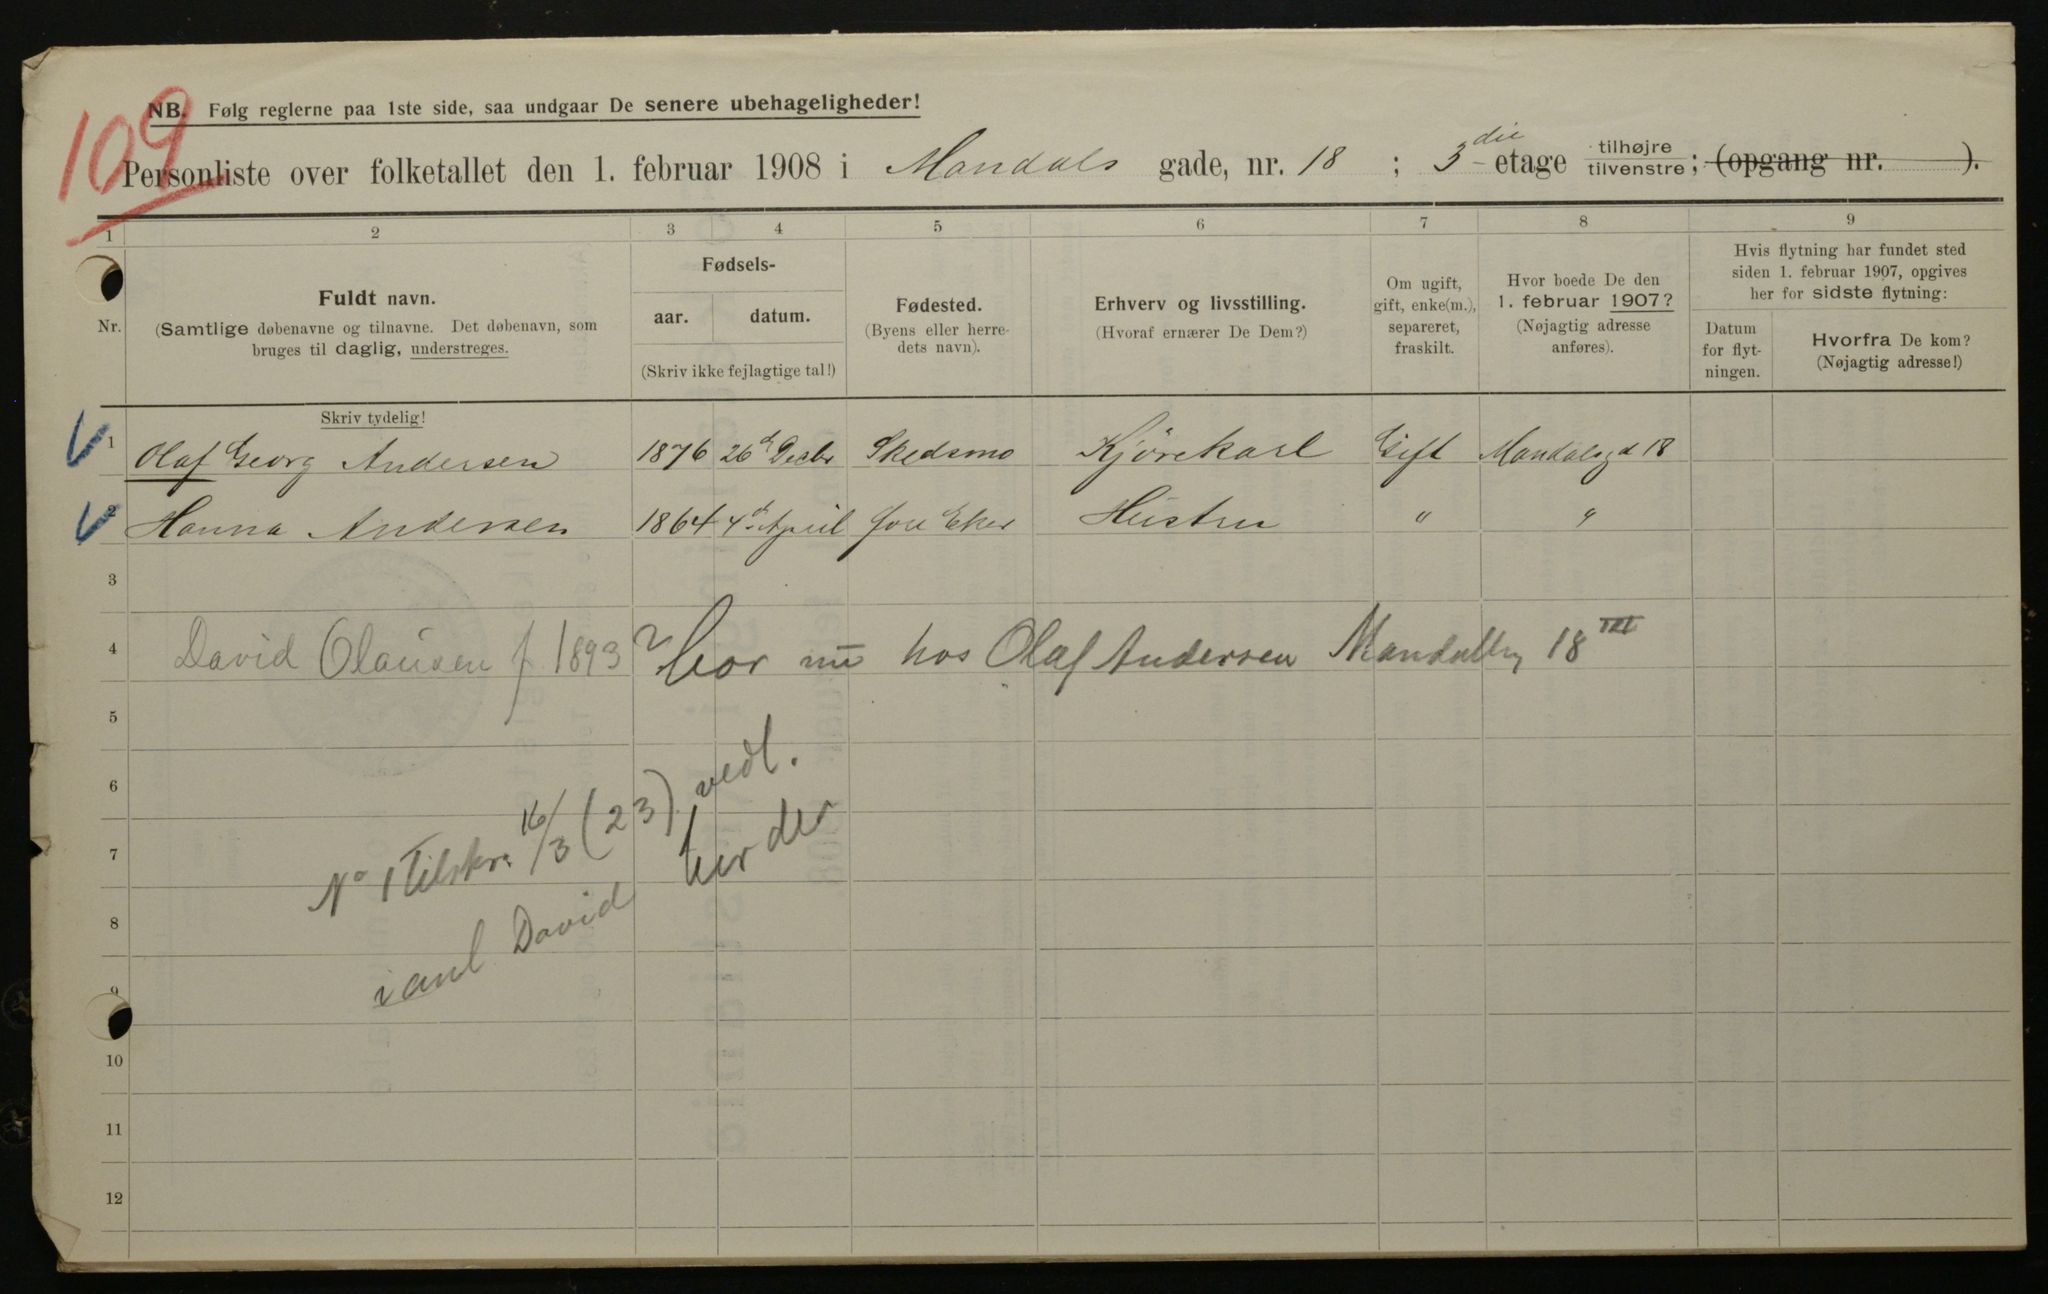 109
NB. Følg reglerne paa 1ste side, saa undgaar De senere ubehageligheder!
Personliste over folketallet den 1. februar 1908 i Mandals gade, nr. 18 ; 3die etage tilhøjre tilvenstre ; (opgang nr. ).
1 2 3 4 5 6 7 8 9
Nr.
Fuldt navn.
(Samtlige døbenavne og tilnavne. Det døbenavn, som
bruges til daglig, understreges.
Fødsels-
aar. datum.
(Skriv ikke fejlagtige tal!)
Fødested.
(Byens eller herre-
dets navn).
Erhverv og livsstilling.
(Hvoraf ernærer De Dem?)
Om ugift,
gift, enke(m.),
separeret,
fraskilt.
Hvor boede De den
1. februar 1907?
(Nøjagtig adresse
anføres).
Hvis flytning har fundet sted
siden 1. februar 1907, opgives
her for sidste flytning:
Datum
for flyt-
ningen.
Hvorfra De kom?
(Nøjagtig adresse!)
Skriv tydelig!
1 Olaf Georg Andersen 1876 26d Decbr Skedsmo Kjörekarl Gift Mandalsgd 18
2 Hanna Andersen 1864 4d April Eker Hustru " "
3
4 David Olausen f 1893 ? bor nu hos Olaf Andersen 18 III
5
6
7
8
9
10
11
12
No 1 Tilskr. 16/3 (23) vedl.
David